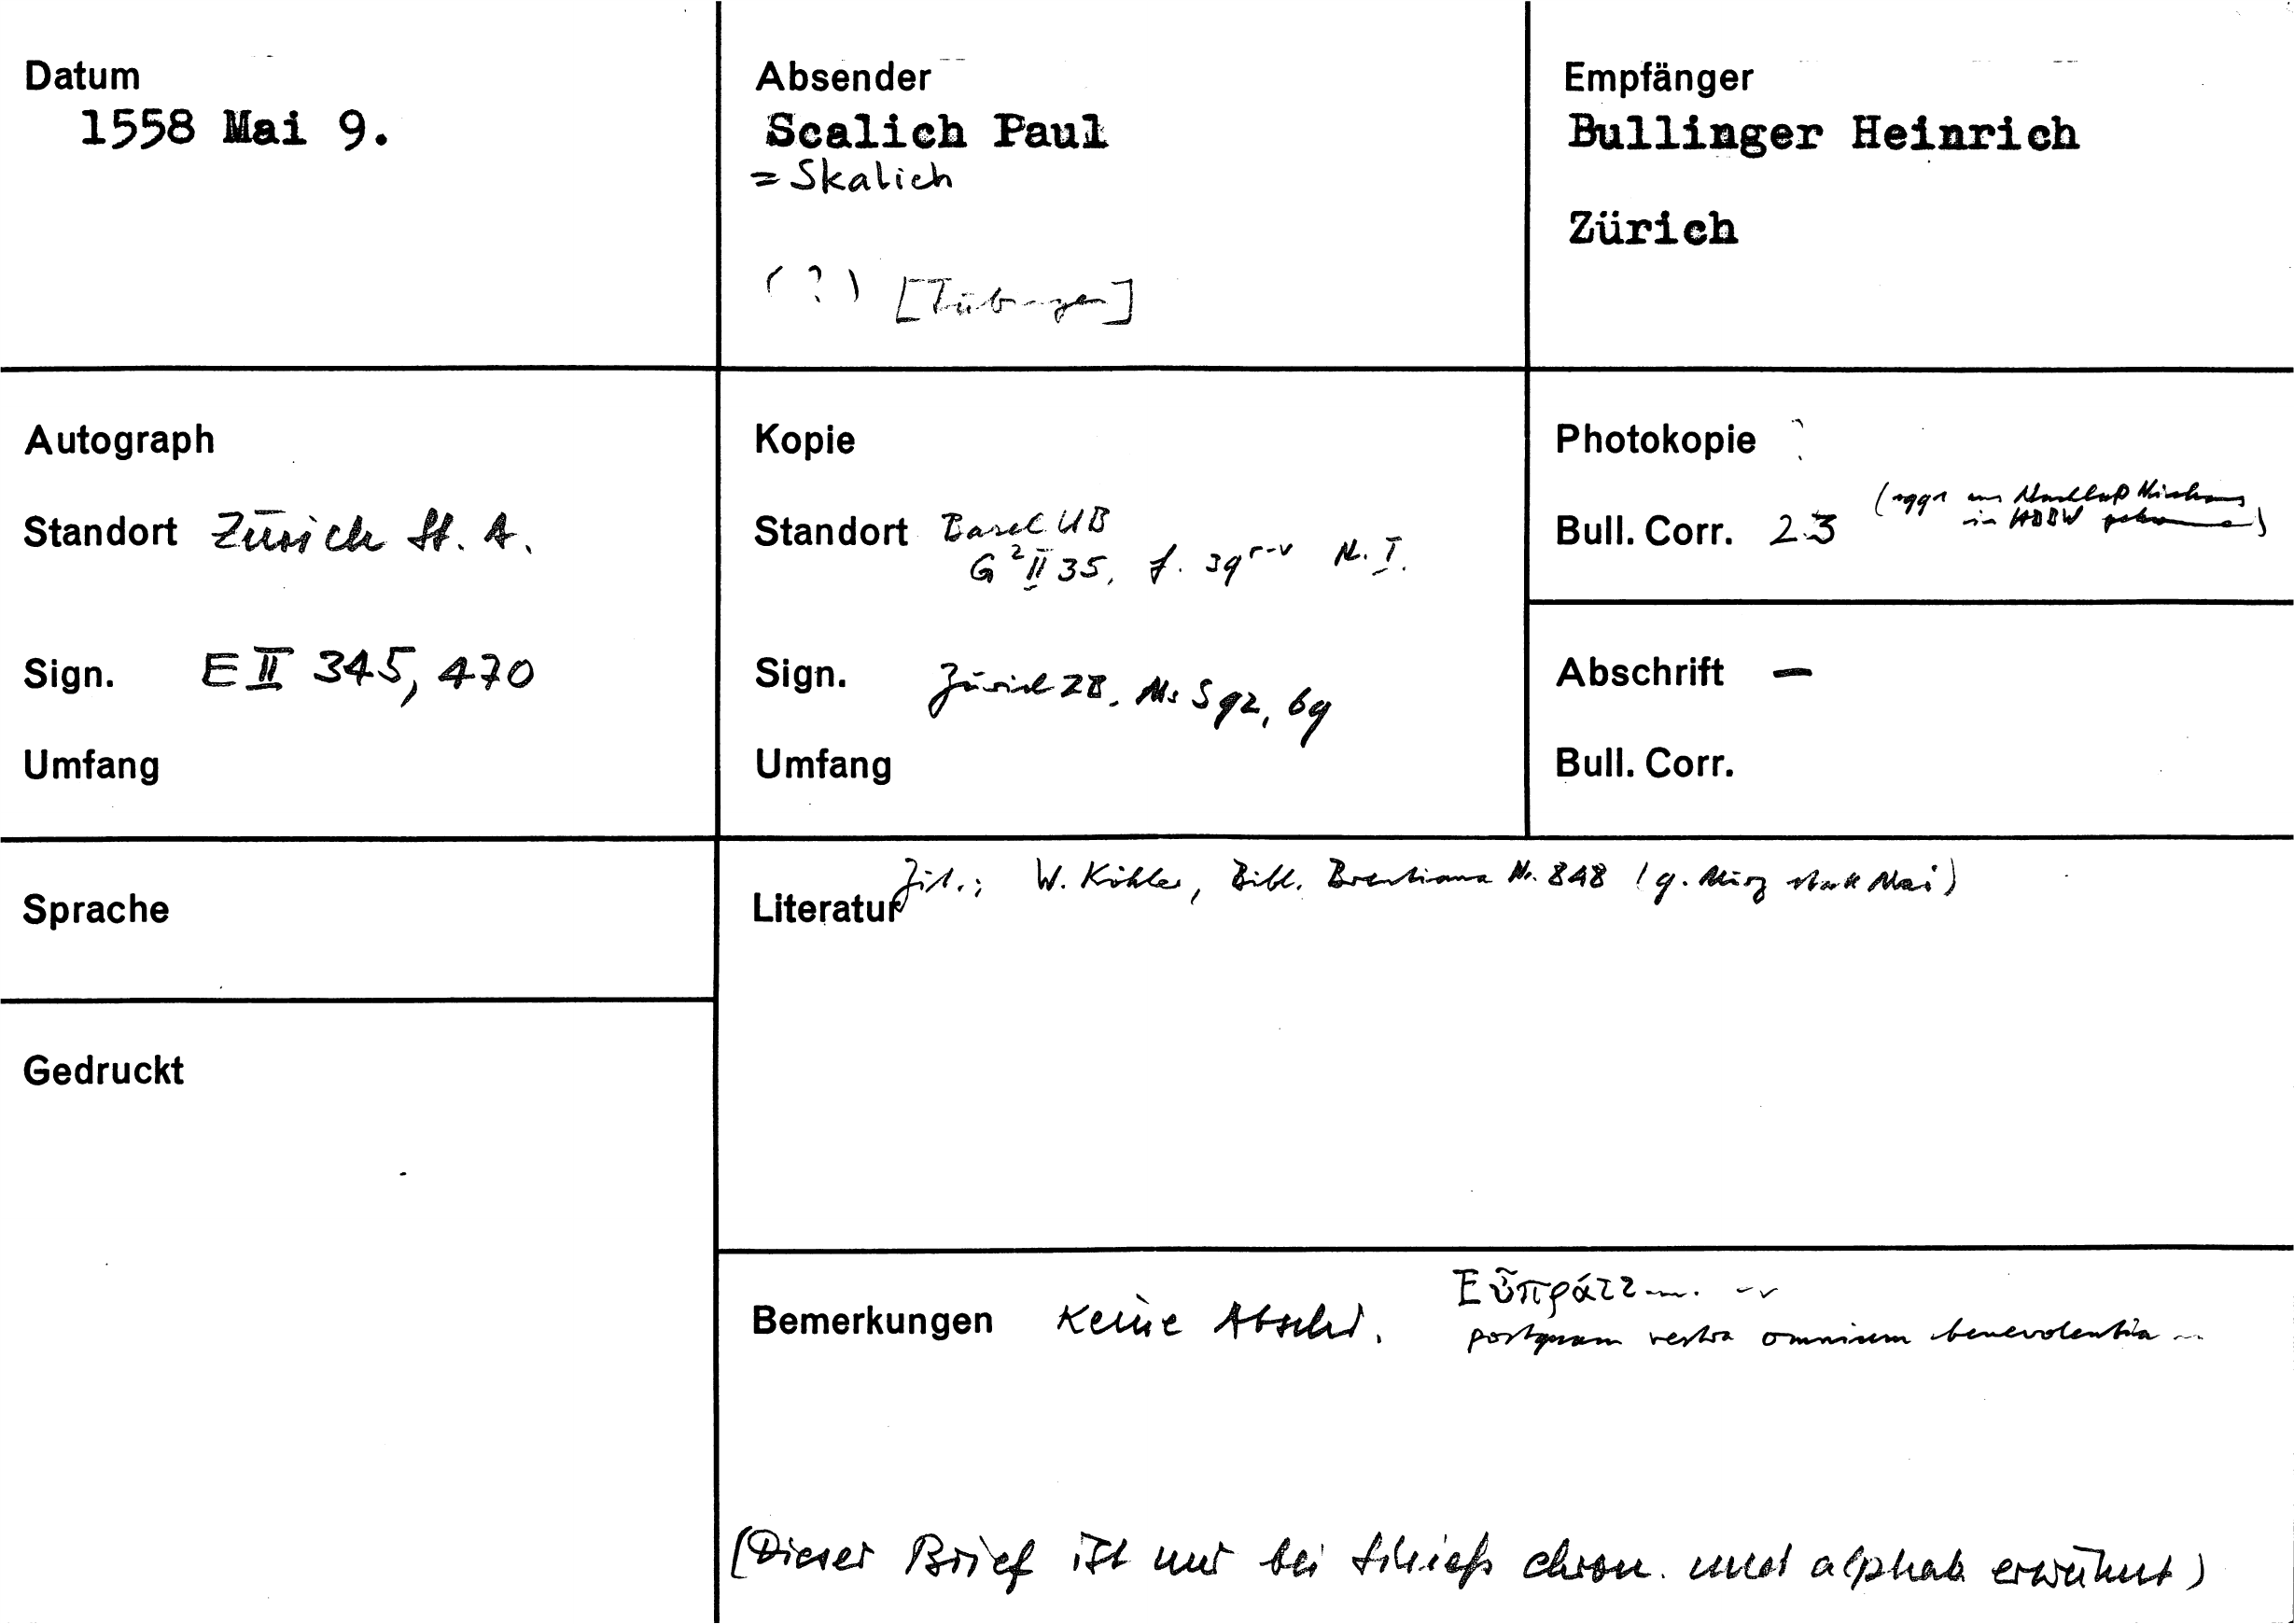 Datum
1558 Mai 9.
Absender
Scalich Paul
= Skalich
(?) [Tübingen]
Empfänger
Bullinger Heinrich
Zürich
Autograph
Standort Zürich St. A.
Sign. E II 345, 470
Umfang
Kopie
Standort Basel UB
G² II 35, f. 39r-v N. I.
Sign. Zürich ZB. Ms S 92, 69
Umfang
Photokopie
Bull. Corr. 23
(1991 aus Nachlaß
in HBBW gekommen)
Abschrift –
Bull. Corr.
Sprache
Literatur Zit.: W. Köhler, Bibl. Brentiana Nr. 848 (9. März statt Mai)
Gedruckt
Bemerkungen Keine Abschr.
postquam vestra omnium benevolentia ...
(Dieser Brief ist nur bei Schieß chron. und alphab erwähnt)